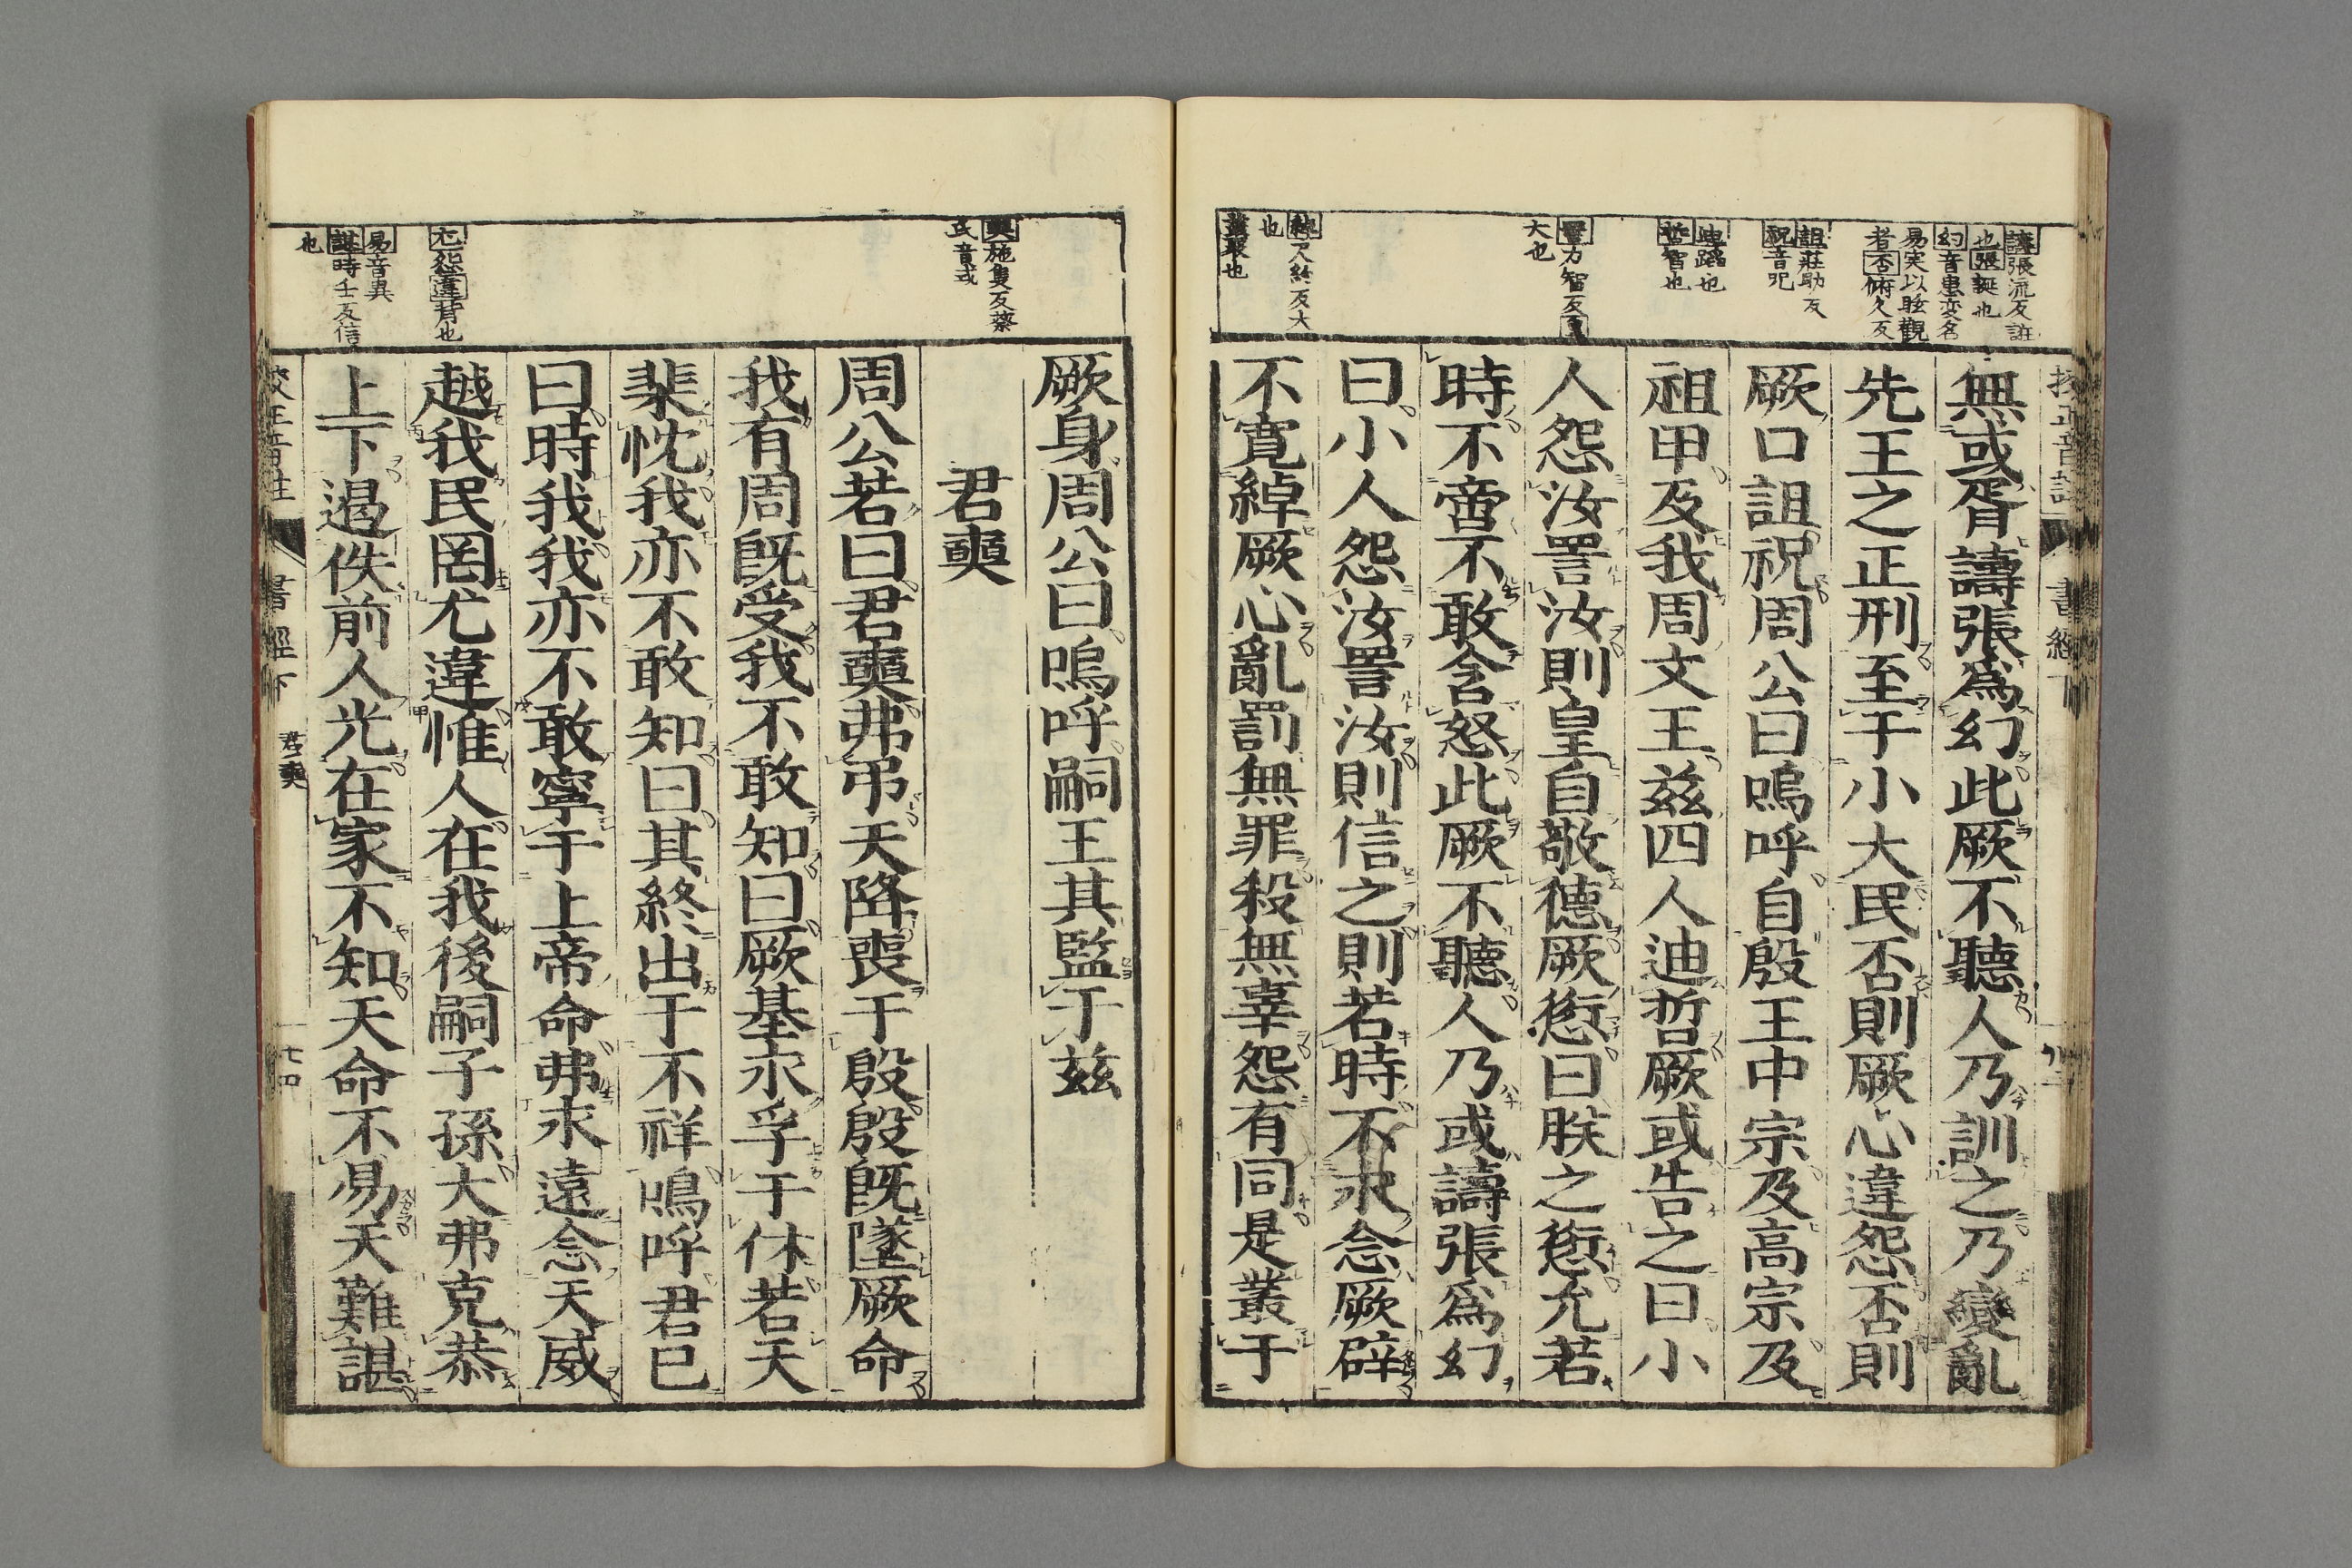 譸張流反誑
也張誕也
幻音患変名
易実以眩觀
者否俯久反
詛莊助反
祝音呪
迪蹈也
哲智也
詈力智反皇
大也
綽尺約反大
也
叢聚也
無或胥譸張爲幻此厥不聽人乃訓之乃變亂
先王之正刑至于小大民否則厥心違怨否則
厥口詛祝周公曰嗚呼自殷王中宗及高宗及
祖甲及我周文王兹四人迪哲厥或告之曰小
人怨汝詈汝則皇自敬德厥愆曰朕之愆允若
時不啻不敢含怒此厥不聽人乃或譸張爲幻
曰小人怨汝詈汝則信之則若時不永念厥辟
不寛綽厥心亂罰無罪殺無辜怨有同是叢于
奭施隻反蔡
氏音或
尤怨違背也
易音異
諶時壬反信
也
厥身周公曰嗚呼嗣王其監于兹
君奭
周公若曰君奭弗弔天降喪于殷殷既墜厥命
我有周既受我不敢知曰厥基永孚于休若天
棐忱我亦不敢知曰其終出于不祥嗚呼君已
曰時我我亦不敢寧于上帝命弗永遠念天威
越我民罔尤違惟人在我後嗣子孫大弗克恭
上下遏佚前人光在家不知天命不易天難諶
校正音註 書經下 君奭 七四